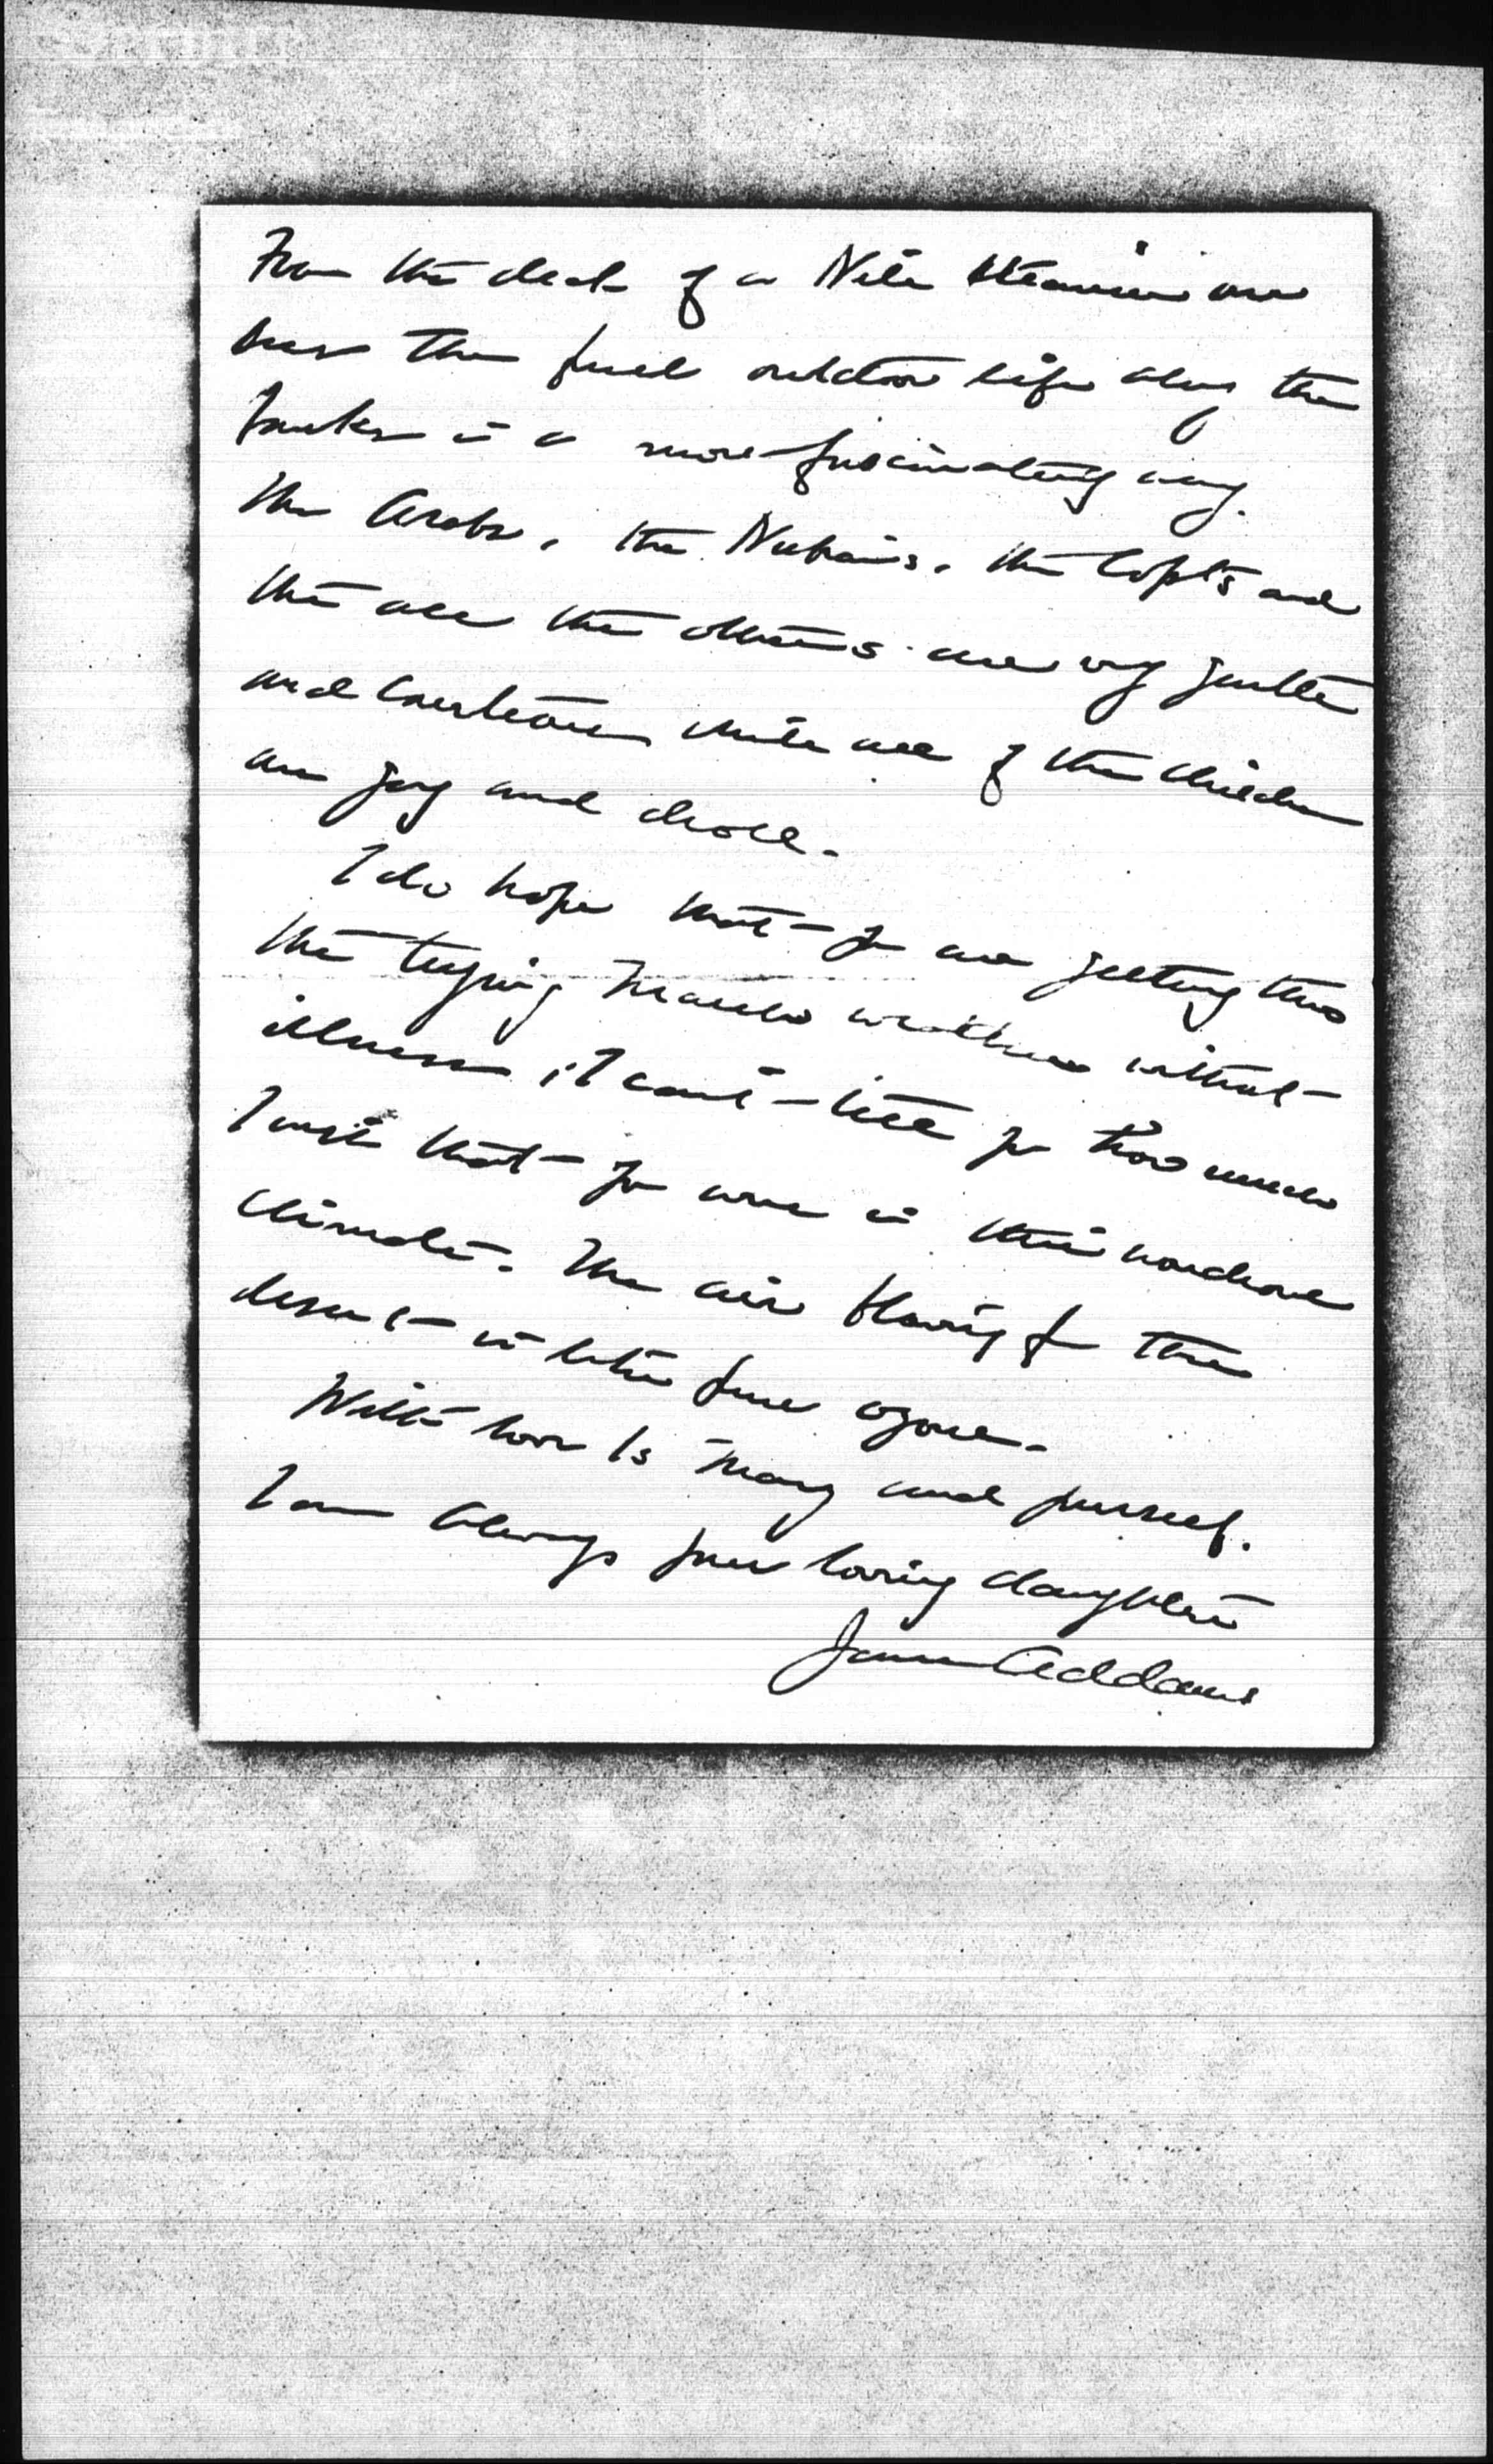 From the deck of a Nile steamer one
sees the full outdoor life along the
banks in a most fascinating way.
The Arabs, the Nubians, the Copts and
the all the others are very gentle
and courteous while all of the children
are gay and droll.
I do hope that you are getting thro
the trying March weather without
illness, I can't tell you how much
I wish that you were in this wondrous
climate. The air blowing from the
desert is like pure ozone.
With love to Mary and yourself.
I am always your loving daughter
Jane Addams